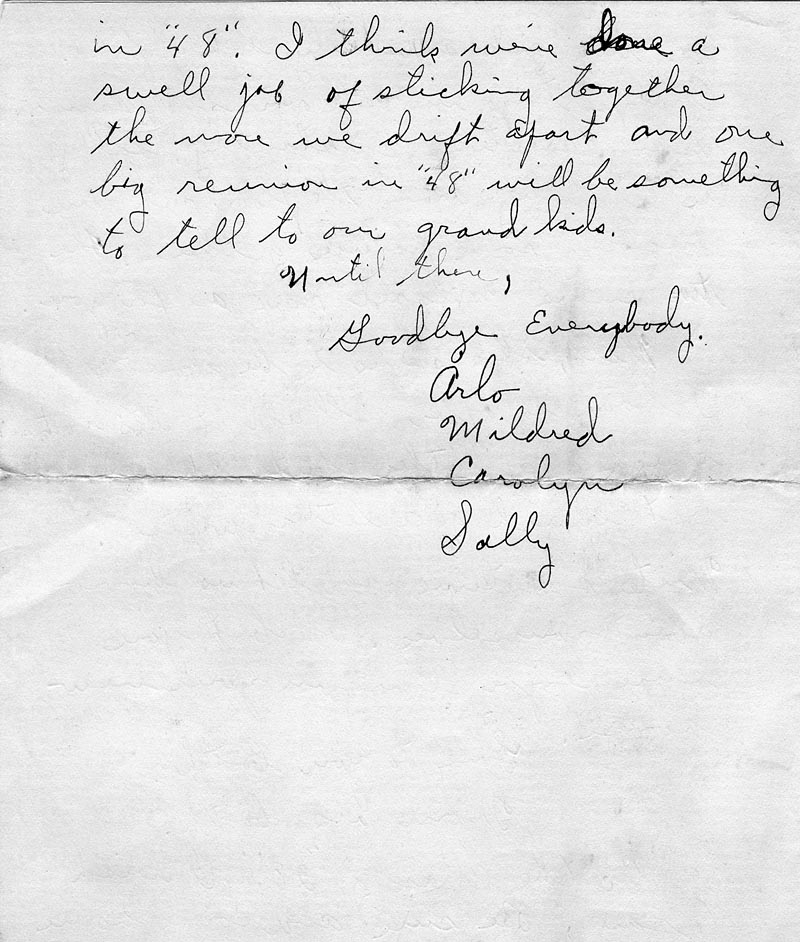 in "48". I think we've done a
swell job of sticking together
the more we drift apart and one
big reunion in "48" will be something
to tell to our grand kids.
Until then,
Goodbye Everybody.
Arlo
Mildred
Carolyn
Sally